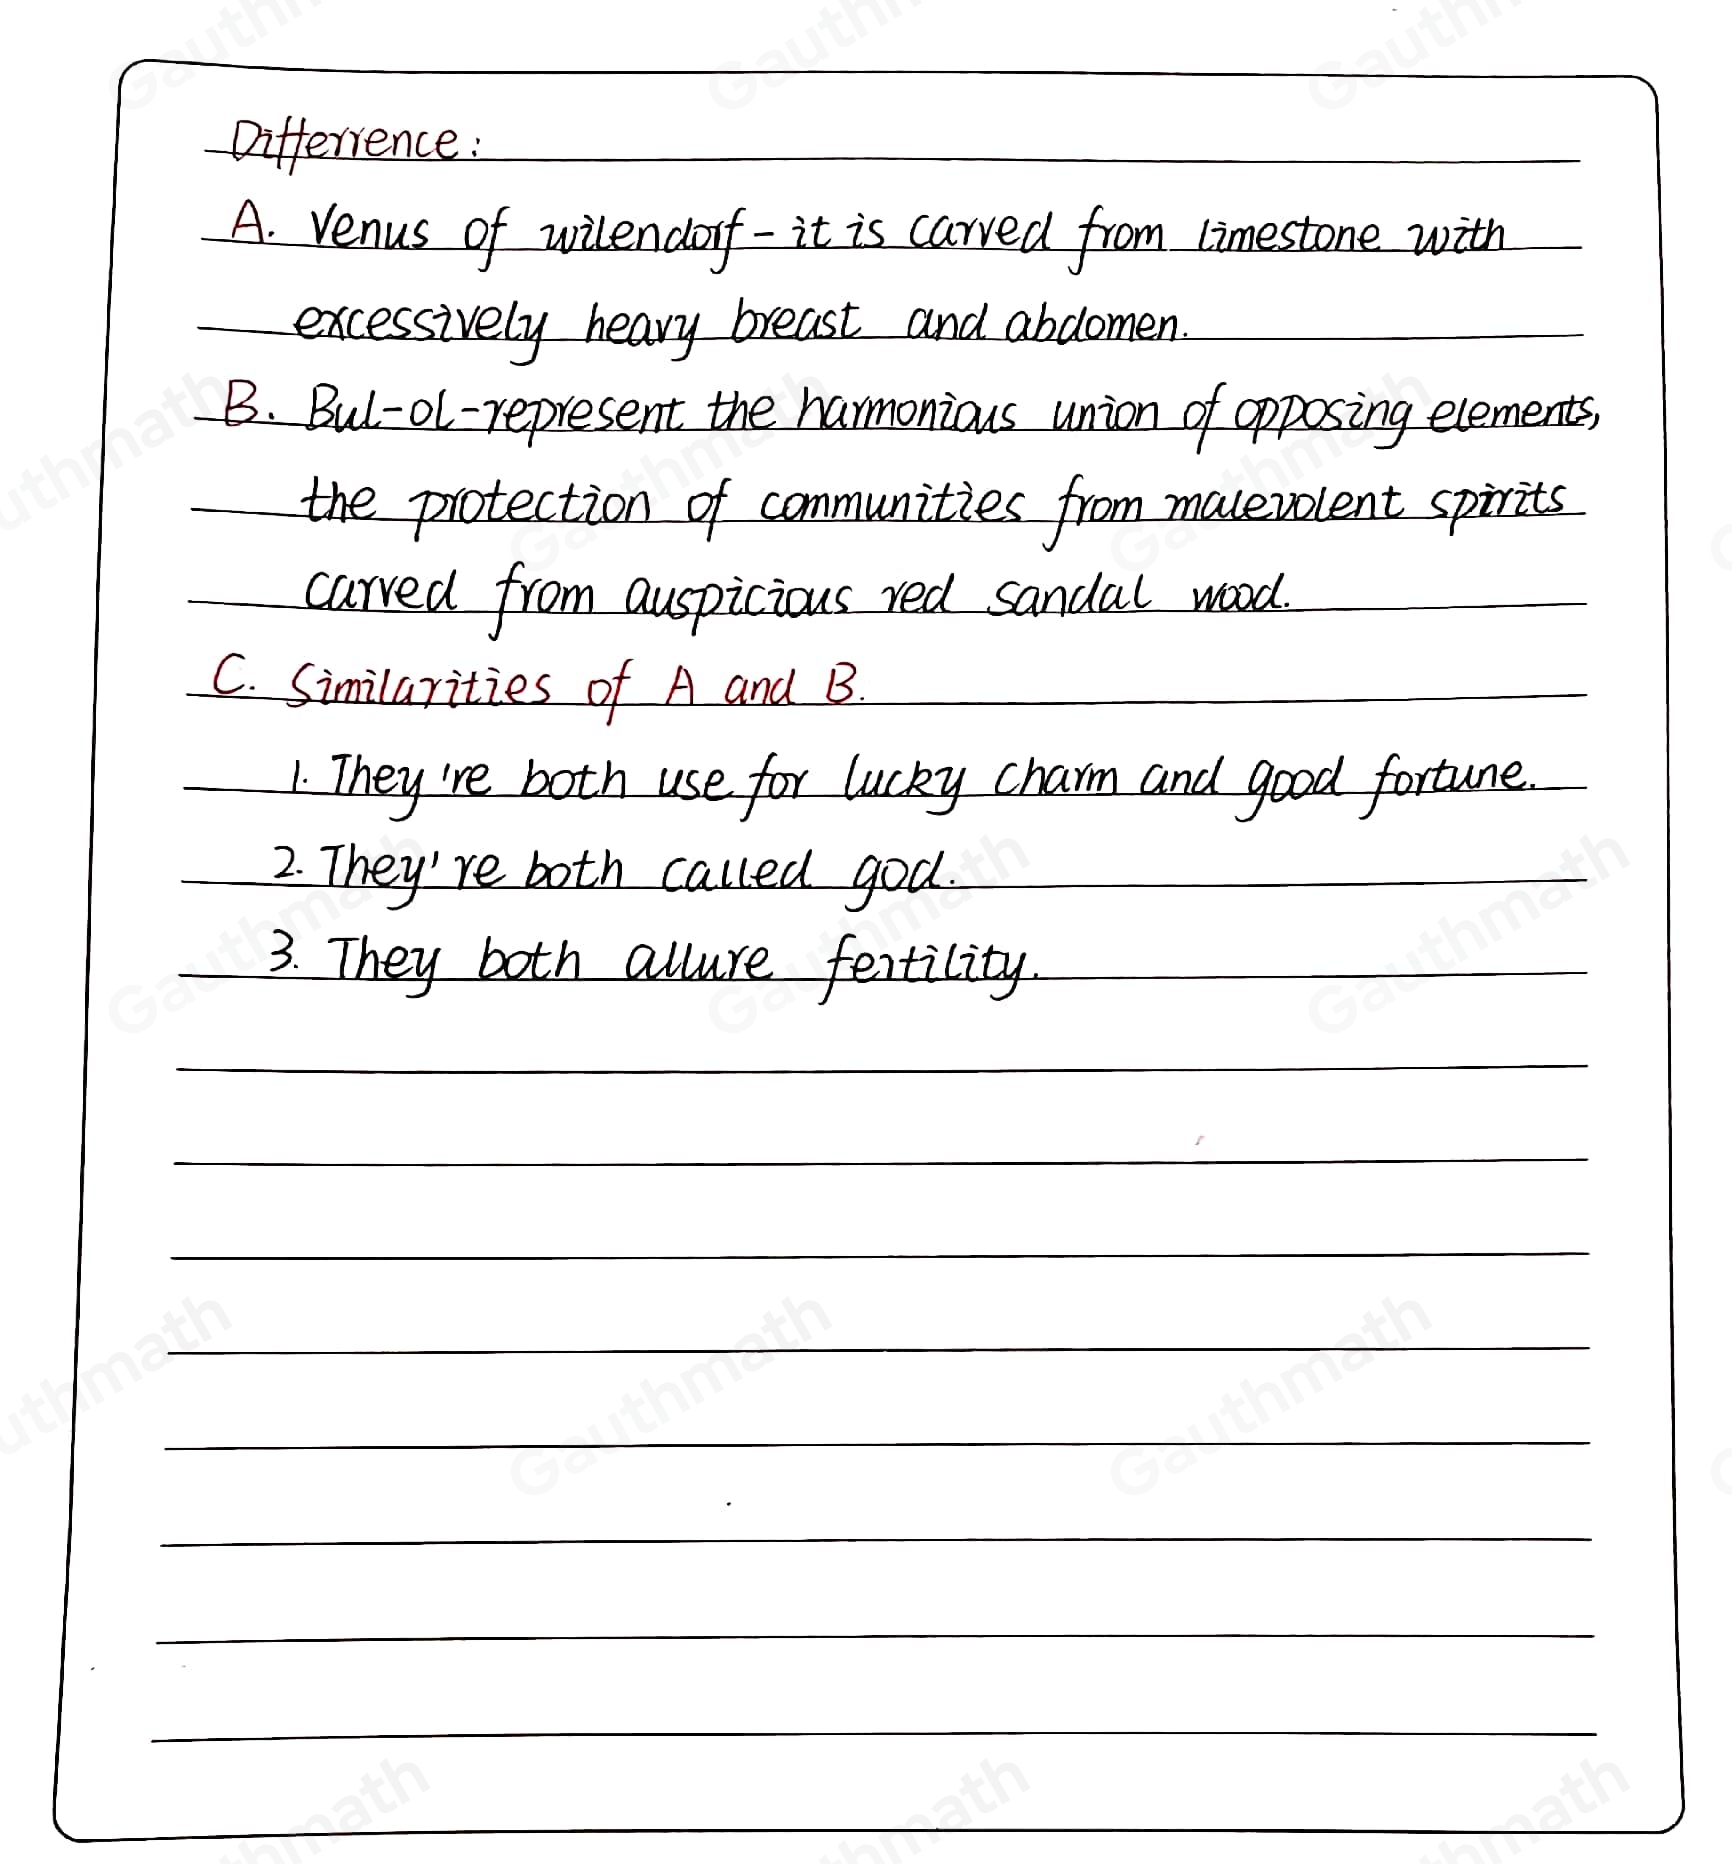 Differrence:
A. Venus of wilendorf - it is carved from limestone with
excessively heavy breast and abdomen.
B. Bul-ol-represent the harmonious union of opposing elements,
the protection of communities from malevolent spirits
carved from auspicious red sandal wood.
C. Similarities of A and B.
1. They're both use for lucky charm and good fortune.
2. They're both called god.
3. They both allure fertility.
Gauthmath